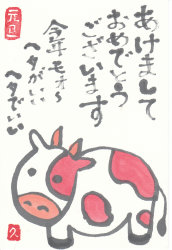 あけまして
おめでとう
ございます
今年モォ〜
ヘタがいい
ヘタでいい
元旦
久